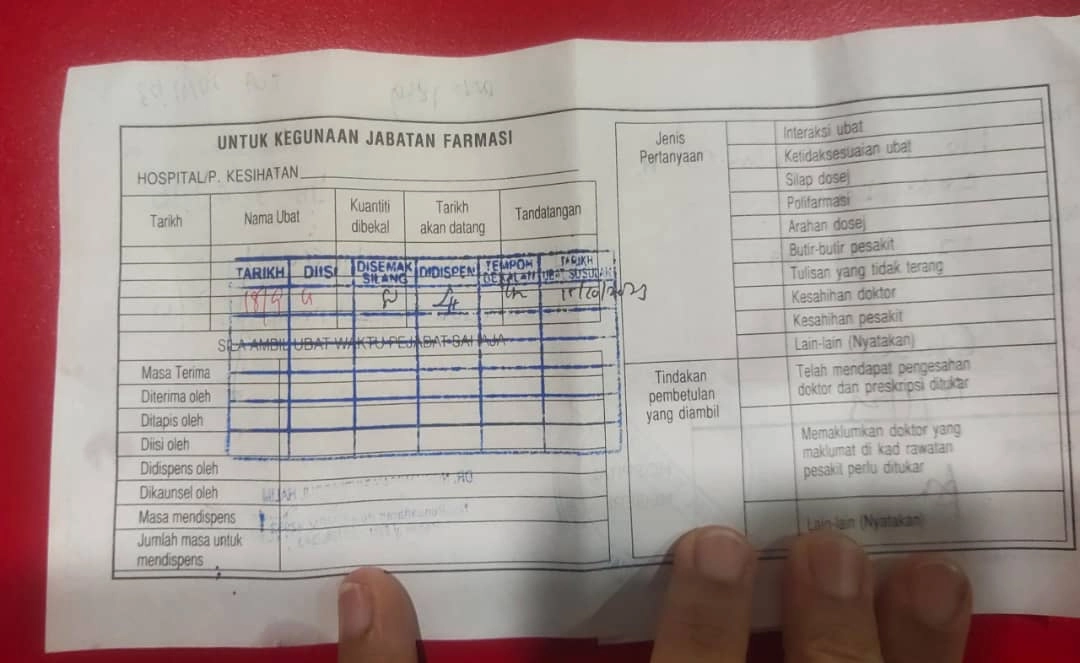 UNTUK KEGUNAAN JABATAN FARMASI
HOSPITAL/P. KESIHATAN
Tarikh
Nama Ubat
Kuantiti
dibekal
Tarikh
akan datang
Tandatangan
TARIKH
DIISI
DISEMAK
SILANG
DIDISPEN
TEMPOH
BEKALAN
TARIKH
UBAT SUSULAN
18/9
18/10/2023
SILA AMBIL UBAT WAKTU PEJABAT SAHAJA
Masa Terima
Diterima oleh
Ditapis oleh
Diisi oleh
Didispens oleh
Dikaunsel oleh
Masa mendispens
Jumlah masa untuk
mendispens
Jenis
Pertanyaan
Interaksi ubat
Ketidaksesuaian ubat
Silap dosej
Polifarmasi
Arahan dosej
Butir-butir pesakit
Tulisan yang tidak terang
Kesahihan doktor
Kesahihan pesakit
Lain-lain (Nyatakan)
Tindakan
pembetulan
yang diambil
Telah mendapat pengesahan
doktor dan preskripsi ditukar
Memaklumkan doktor yang
maklumat di kad rawatan
pesakit perlu ditukar
Lain-lain (Nyatakan)